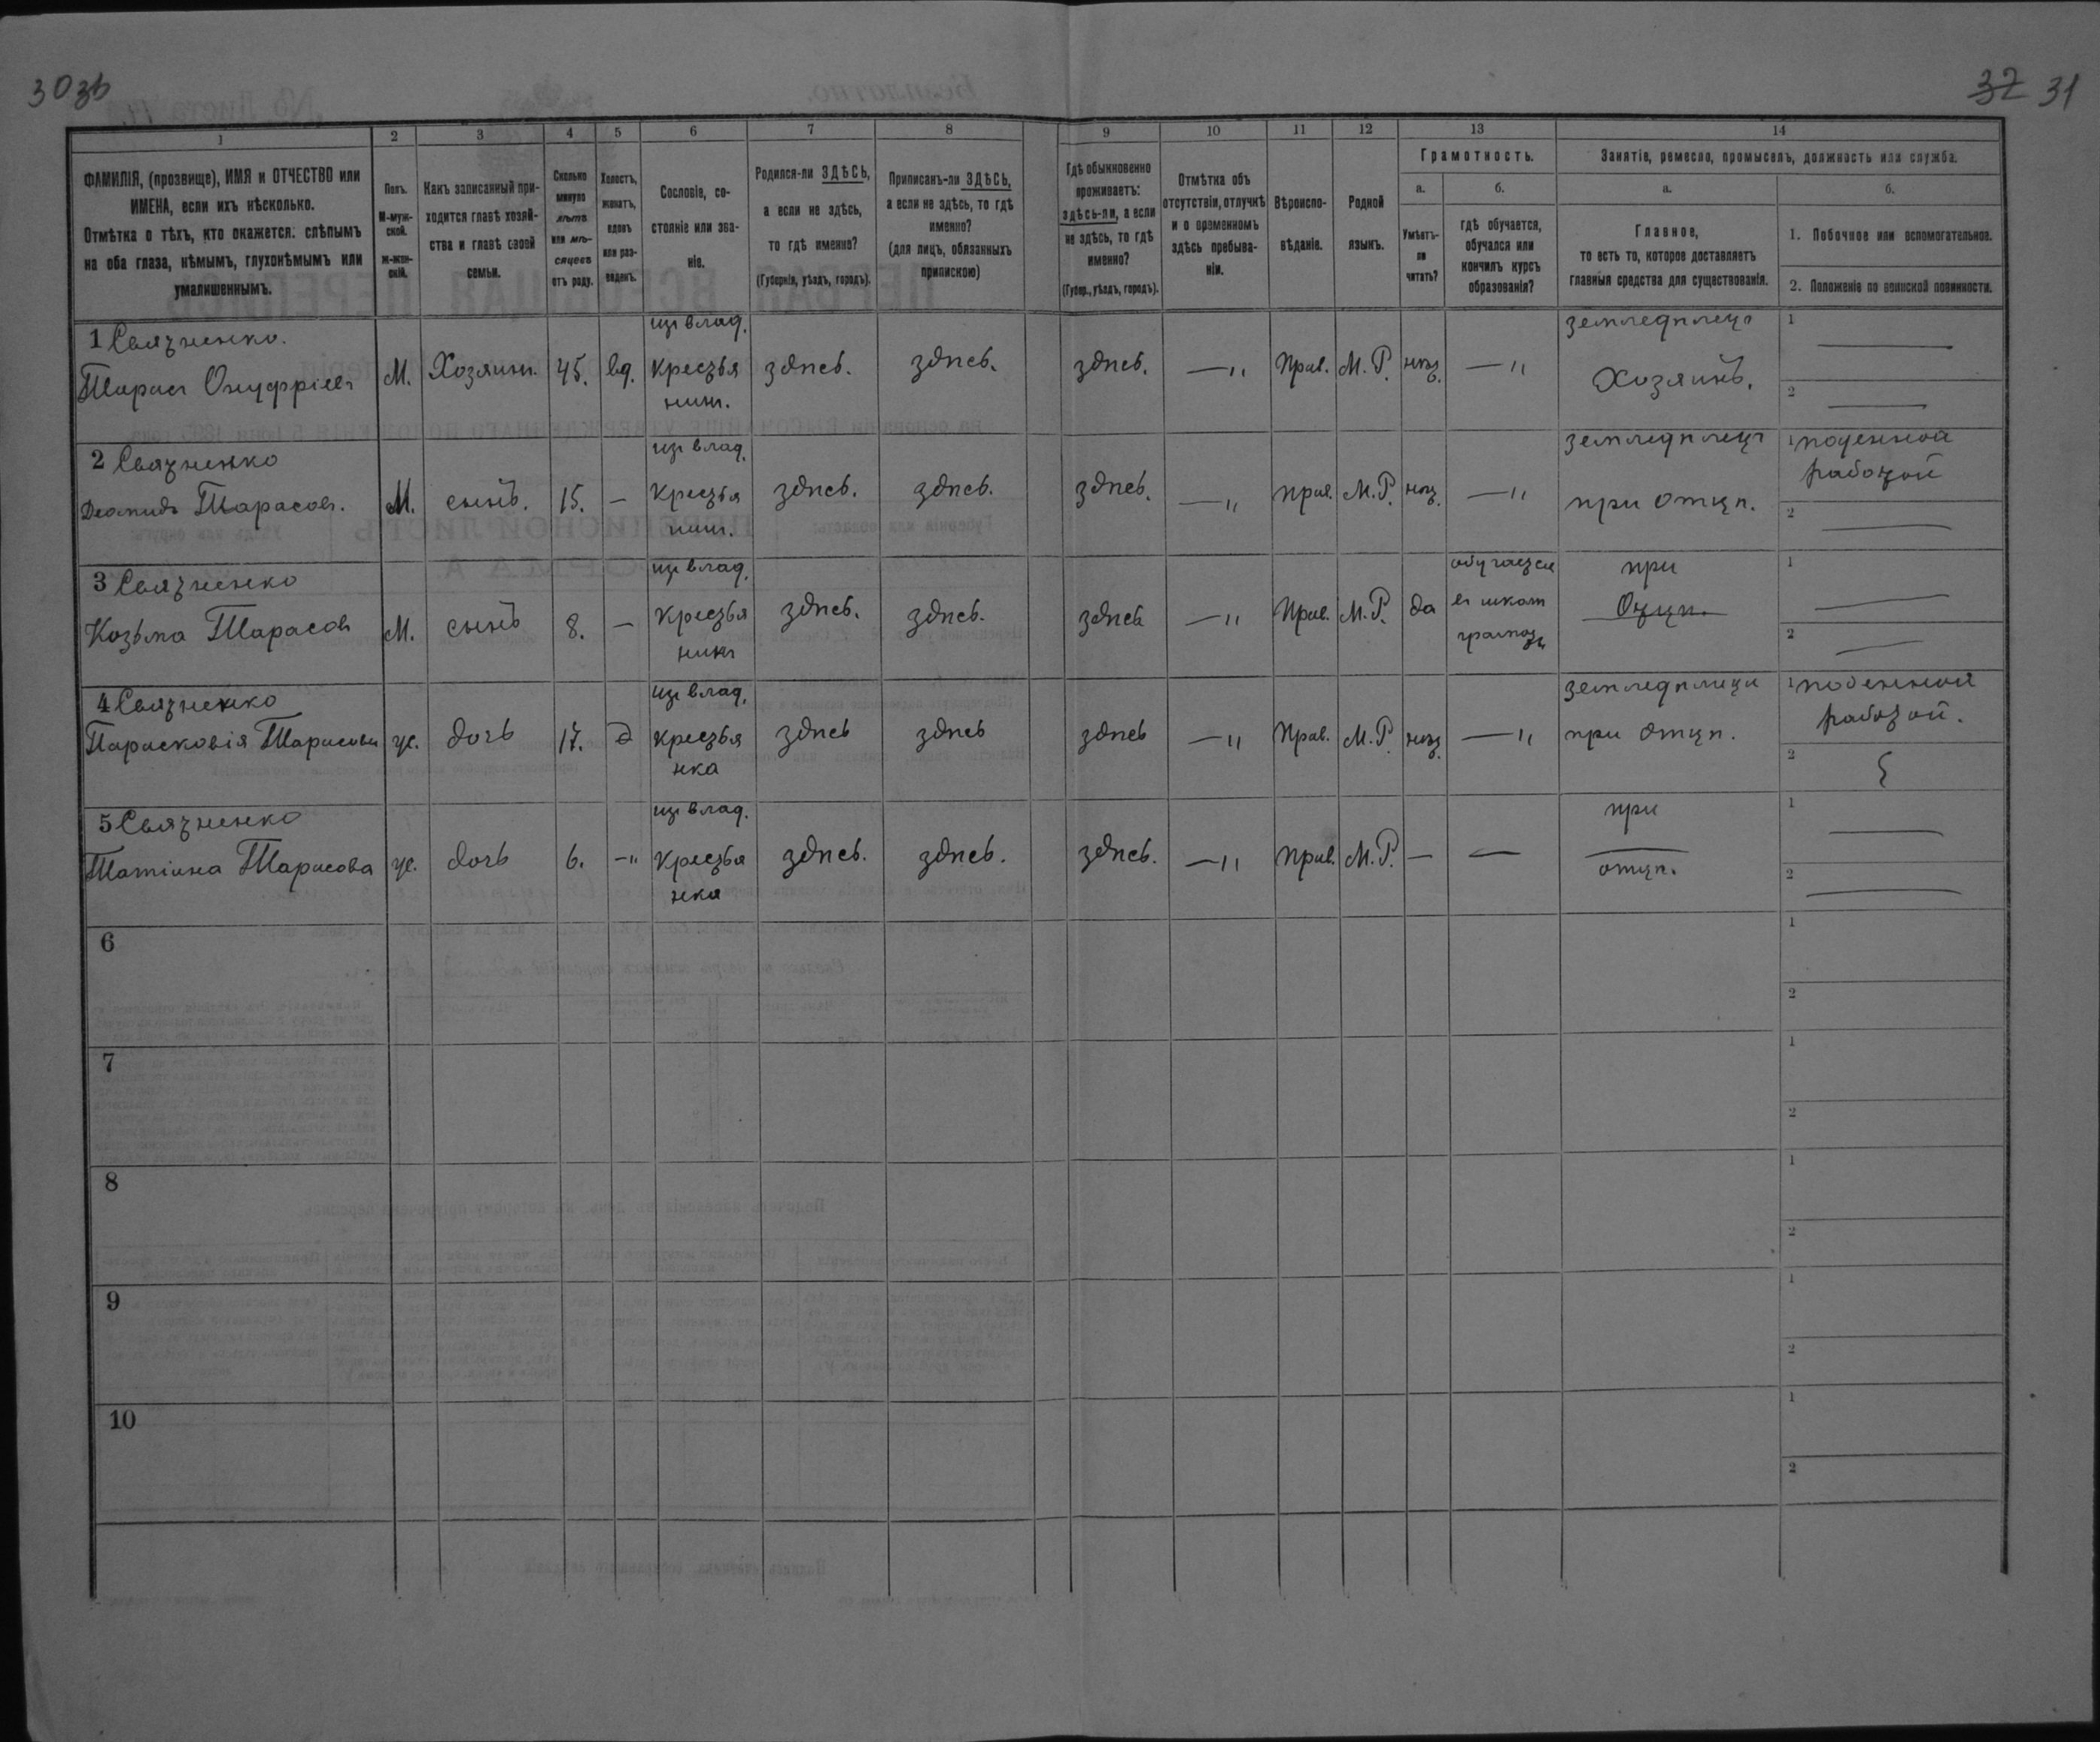 30зв
32 31
1
2
3
4
5
6
7
8
9
10
11
12
13
14
ФАМИЛІЯ, (прозвище), ИМЯ и ОТЧЕСТВО или
ИМЕНА, если ихъ нѣсколько.
Отмѣтка о тѣхъ, кто окажется: слѣпымъ
на оба глаза, нѣмымъ, глухонѣмымъ или
умалишеннымъ.
Полъ.
М-муж-
ской.
ж-жен-
скій.
Какъ записанный при-
ходится главѣ хозяй-
ства и главѣ своей
семьи.
Сколько
минуло
лѣтъ
или мѣ-
сяцевъ
отъ роду.
Холостъ,
женатъ,
вдовъ
или раз-
веденъ.
Сословіе, со-
стояніе или зва-
ніе.
Родился-ли ЗДѢСЬ,
а если не здѣсь,
то гдѣ именно?
(Губернія, уѣздъ, городъ).
Приписанъ-ли ЗДѢСЬ,
а если не здѣсь, то гдѣ
именно?
(для лицъ, обязанныхъ
припискою)
Гдѣ обыкновенно
проживаетъ:
здѣсь-ли, а если
не здѣсь, то гдѣ
именно?
(Губер., уѣздъ, городъ).
Отмѣтка объ
отсутствіи, отлучкѣ
и о временномъ
здѣсь пребыва-
ніи.
Вѣроиспо-
вѣданіе.
Родной
языкъ.
Грамотность.
а.
б.
Умѣетъ-
ли
читать?
гдѣ обучается,
обучался или
кончилъ курсъ
образованія?
Занятіе, ремесло, промыселъ, должность или служба.
а.
б.
Главное,
то есть то, которое доставляетъ
главныя средства для существованія.
1. Побочное или вспомогательное.
2. Положеніе по воинской повинности.
1 Связненко.
Тарасъ Онуфріевъ
М.
Хозяинъ.
45.
вд.
из влад.
Крестья
нинъ.
здѣсь.
здѣсь.
здѣсь.
—"
Прав.
М. Р.
нѣт.
—"
земледѣлецъ
Хозяинъ.
1
2
2 Связненко
Тарасовъ.
М.
сынъ.
15.
—
из влад.
Крестья
нинъ.
здѣсь.
здѣсь.
здѣсь.
—"
Прав.
М. Р.
нѣт.
—"
земледѣлецъ
при отцѣ.
1 поденной
работой
2
3 Связненко
Козьма Тарасовъ
М.
сынъ
8.
—
из влад.
Крестья
никъ
здѣсь.
здѣсь.
здѣсь
—"
Прав.
М. Р.
да
обучается
въ школѣ
грамотѣ
при
Отцѣ.
1
2
4 Связненко
Парасковія Тарасова
ж.
дочь
17.
из влад.
крестья
нка
здѣсь
здѣсь
здѣсь
—"
Прав.
М. Р.
нѣт.
—"
земледѣлица
при отцѣ.
1 поденной
работой.
2
5 Связненко
Татіана Тарасова
ж.
дочь
6.
—"
из влад.
Крестья
нка
здѣсь.
здѣсь.
здѣсь.
—"
Прав.
М. Р.
—
—
при
отцѣ.
1
2
6
1
2
7
1
2
8
1
2
9
1
2
10
1
2